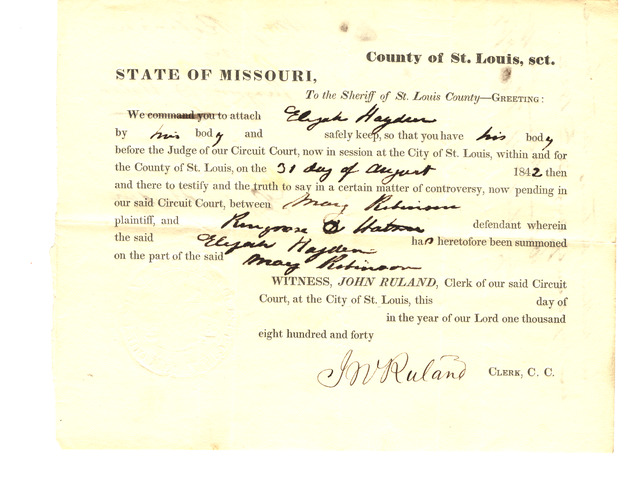 County of St. Louis, sct.
STATE OF MISSOURI,
To the Sheriff of St. Louis County—GREETING:
We command you to attach Elijah Hayden
by his body and safely keep, so that you have his body
before the Judge of our Circuit Court, now in session at the City of St. Louis, within and for
the County of St. Louis, on the 31 day of August 1842 then
and there to testify and the truth to say in a certain matter of controversy, now pending in
our said Circuit Court, between Mary Robinson
plaintiff, and Ringrose D Watson defendant wherein
the said Elijah Hayden has heretofore been summoned
on the part of the said Mary Robinson
WITNESS, JOHN RULAND, Clerk of our said Circuit
Court, at the City of St. Louis, this day of
in the year of our Lord one thousand
eight hundred and forty
J W Ruland CLERK, C. C.